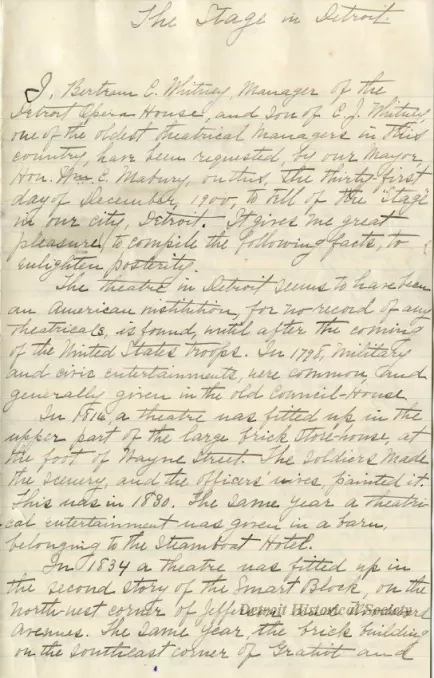 The Stage in Detroit.
I, Bertram C. Whitney, Manager of the
Detroit Opera House, and Son of C. J. Whitney,
one of the oldest theatrical Managers in this
country, have been requested, by our Mayor,
Hon. Wm. C. Mabury, on this, the thirty-first
day of December, 1900, to tell of the "Stage"
in our city, Detroit. It gives me great
pleasure, to compile the following facts, to
enlighten posterity.
The theatre in Detroit seems to have been
an American institution, for no record of any
theatricals, is found, until after the coming
of the United States troops. In 1798, military
and civic entertainments, were common and
generally given in the old Council-House.
In 1816, a theatre was fitted up in the
upper part of the large brick storehouse, at
the foot of Wayne Street. The soldiers made
the scenery, and the officers' wives, painted it.
This was in 1830. The same year a theatri-
cal entertainment was given in a barn,
belonging to the Steamboat Hotel.
In 1834 a theatre was fitted up in
the second story of the Smart Block, on the
north-west corner of Jefferson and Woodward
Detroit Historical Society
Avenues. The same year, the brick building
on the southeast corner of Gratiot and